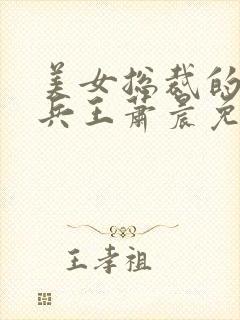 美女总裁的
兵王萧晨免
王孝祖